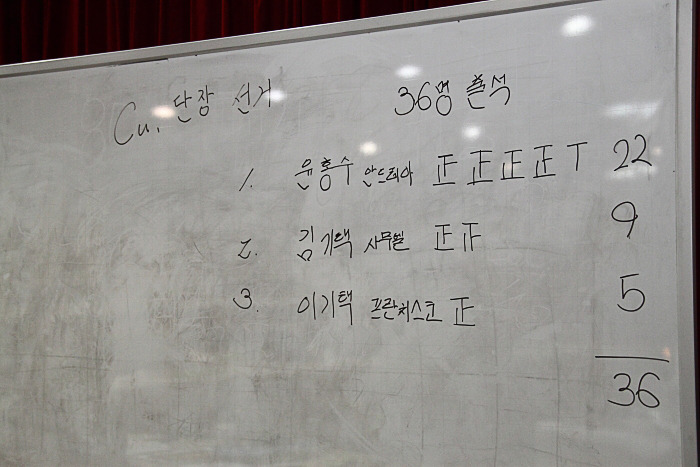 Cu. 단장 선거 36명 출석
1. 윤홍수 안드레아 正 正 正 正 T 22
2. 김기택 사무엘 正 正 9
3. 이기택 프란치스코 正 5
36